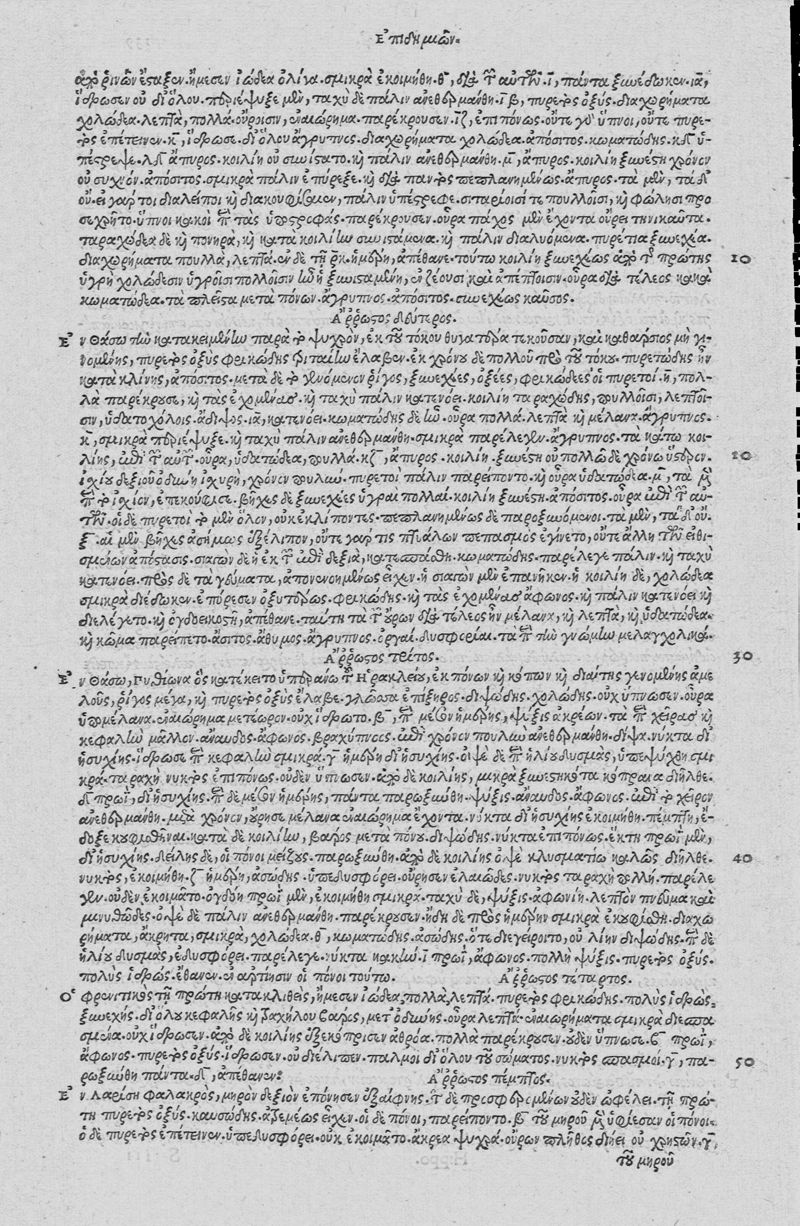 Ἐπιδημιῶν.
ἀπὸ ῥινῶν ἔσταξεν. ἤμεσεν ἰώδεα ὀλίγα. σμικρὰ ἐκοιμήθη. θ̅, διὰ τῶν αὐτῶν. ι̅, πάντα ξυνέδωκεν. ια̅,
ἵδρωσεν οὐ δι' ὅλου. περιέψυξε μὲν, ταχὺ δὲ πάλιν ἀνεθερμάνθη. ιβ̅, πυρετὸς ὀξύς. διαχωρήματα
χολώδεα. λεπτὰ, πολλά. οὔροισιν, ἐναιώρημα. παρέκρουσεν. ιζ̅, ἐπιπόνως. οὔτε γὰρ ὕπνοι, οὔτε πυρε-
τὸς ἐπέτεινεν. κ̅, ἵδρωσε. δι' ὅλου ἄγρυπνος. διαχωρήματα χολώδεα. ἀπόσιτος. κωματώδης. κδ̅ ὑ-
πέστρεψε. λδ̅ ἄπυρος. κοιλίη οὐ συνίστατο. καὶ πάλιν ἀνεθερμάνθη. μ̅, ἄπυρος. κοιλίη ξυνέστη χρόνον
οὐ συχνόν. ἀπόσιτος. σμικρὰ πάλιν ἐπύρεξε. καὶ διὰ παντὸς πεπλανημένως. ἄπυρος. τὰ μὲν, τὰ δ'
οὔ. εἰ γάρ τοι διαλείποι καὶ διακουφίζοιεν, πάλιν ὑπέστρεφε. σιταρίοισί τε πουλλοῖσι, καὶ φώλησι προ
σεχρῆτο. ὕπνοι κακοὶ περὶ τὰς ὑποστροφάς. παρέκρουσεν. οὖρα πάχος μὲν ἔχοντα οὔρει τηνικαῦτα.
ταραχώδεα δὲ καὶ πονηρὰ, καὶ κατὰ κοιλίην συνιστάμενα. καὶ πάλιν διαλυόμενα. πυρέτια ξυνεχία.
διαχωρήματα πουλλὰ, λεπτά. ἐν δὲ τῇ ρκ̅. ἡμέρῃ, ἀπέθανε. τούτῳ κοιλίη ξυνεχέως ἀπὸ τῆς πρώτης 10
ὑγρὴ χολώδεσιν ὑγροῖσι πολλοῖσιν ἦν ἢ ξυνισταμένη, ἐν ζέουσι καὶ ἀπέπτοισιν. οὖρα διὰ τέλεος κακὰ
κωματώδεα. τὰ πλεῖστα μετὰ πόνων. ἄγρυπνος. ἀπόσιτος. συνεχέως καῦσος.
Ἄῤῥωστος δεύτερος.
Ἐν Θάσῳ τὴν κατακειμένην παρὰ τὸ ψυχρὸν, ἐκ τοῦ τόκου θυγατέρα τεκοῦσαν, καὶ καθαρσίος μὴ γι-
νομένης, πυρετὸς ὀξὺς φρικώδης τριταίην ἔλαβεν. ἐκ χρόνου δὲ πολλοῦ πρὸ τοῦ τόκου. πυρετώδης ἦν
κατὰ κλίνης, ἀπόσιτος. μετὰ δὲ τὸ γενόμενον ῥῖγος, ξυνεχέες, ὀξέες, φρικώδεες οἱ πυρετοί. η̅, πολ-
λὰ παρέκρουσε, καὶ τὰς ἐχομένας. καὶ ταχὺ πάλιν κατενόει. κοιλίη ταραχώδης, πουλλοῖσι, λεπτοῖ-
σιν, ὑδατοχόλοις. ἄδιψος. ια̅, κατενόει. κωματώδης δὲ ἦν. οὖρα πολλὰ. λεπτὰ καὶ μέλανα. ἄγρυπνος.
κ̅, σμικρὰ περιέψυξε. καὶ ταχὺ πάλιν ἀνεθερμάνθη. σμικρὰ παρέλεγεν. ἄγρυπνος. τὰ κάτω κοι-
λίης, ἐπὶ τῶν αὐτῶν. οὖρα, ὑδατώδεα, πουλλά. κζ̅, ἄπυρος. κοιλίη ξυνέστη οὐ πολλῷ δὲ χρόνῳ ὕστερον. 20
ἰσχίου δεξιοῦ ὀδύνη ἰσχυρὴ, χρόνον πουλύν. πυρετοὶ πάλιν παρείποντο. καὶ οὖρα ὑδατώδεα. μ̅, τὰ μὲν
περὶ τὸ ἰσχίον, ἐπεκούφισε. βῆχες δὲ ξυνεχέες ὑγραὶ πολλαί. κοιλίη ξυνέστη. ἀπόσιτος. οὖρα ἐπὶ τῶν αὐ-
τῶν. οἱ δὲ πυρετοὶ τὸ μὲν ὅλον, οὐκ ἐκλίποντες. πεπλανημένως δὲ παροξυνόμενοι. τὰ μὲν, τὰ δ' οὔ.
ξ̅. αἱ μὲν βῆχες ἀσήμως ἐξέλιπον, οὔτε γάρ τις πτυάλων πεπασμὸς ἐγίνετο, οὔτε ἄλλη τῶν εἰθι-
σμένων ἀπόστασις. σιαγὼν δὲ ἡ ἐκ τῶν ἐπὶ δεξιὰ, κατεσπάσθη. κωματώδης. παρέλεγε πάλιν. καὶ ταχὺ
κατενόει. πρὸς δὲ τὰ γεύματα, ἀπονενοημένως εἶχεν. ἡ σιαγὼν μὲν ἐπανῆκεν. ἡ κοιλίη δὲ, χολώδεα
σμικρὰ διέδωκεν. ἐπύρεσεν ὀξυτέρως. φρικώδης. καὶ τὰς ἐχομένας ἄφωνος. καὶ πάλιν κατενόει καὶ
διελέγετο. καὶ ὀγδοηκοστῇ, ἀπέθανε. ταύτῃ τὰ τῶν οὔρων διὰ τέλεος ἦν μέλανα, καὶ λεπτὰ, καὶ ὑδατώδεα.
καὶ κῶμα παρείπετο. ἄσιτος. ἄθυμος. ἄγρυπνος. ὀργαί. δυσφορίαι. τὰ περὶ τὴν γνώμην μελαγχολικά.
Ἄῤῥωστος τρίτος. 30
Ἐν Θάσῳ, Πυθίωνα ὃς κατέκειτο ὑπεράνω τοῦ Ἡρακλείου, ἐκ πόνων καὶ κόπων καὶ διαίτης γενομένης ἀμε
λοῦς, ῥῖγος μέγα, καὶ πυρετὸς ὀξὺς ἔλαβε. γλῶσσα ἐπίξηρος. διψώδης. χολώδης. οὐχ ὕπνωσεν. οὖρα
ὑπομέλανα. ἐναιώρημα μετέωρον. οὐχ ἵδρυτο. β̅, περὶ μέσον ἡμέρης, ψύξις ἀκρέων. τὰ περὶ χεῖρας καὶ
κεφαλὴν μᾶλλον. ἄναυδος. ἄφωνος. βραχύπνοος. ἐπὶ χρόνον πουλὺν ἀνεθερμάνθη. δίψα. νύκτα δι'
ἡσυχίης. ἵδρωσε περὶ κεφαλὴν σμικρά. γ̅ ἡμέρη δι' ἡσυχίης. ὀψὲ δὲ περὶ ἡλίου δυσμὰς, ὑπεψύχθη σμι
κρά. ταραχὴ. νυκτὸς ἐπιπόνως. οὐδὲν ὕπνωσεν. ἀπὸ δὲ κοιλίης, μικρὰ ξυνεστηκότα κόπρανα διῆλθε.
δ̅ πρωῒ, δι' ἡσυχίης. περὶ δὲ μέσον ἡμέρης, πάντα παρωξύνθη. ψύξις. ἄναυδος. ἄφωνος. ἐπὶ τὸ χεῖρον
ἀνεθερμάνθη. μετὰ χρόνον, οὔρησε μέλανα ἐναιώρημα ἔχοντα. νύκτα δι' ἡσυχίης ἐκοιμήθη. πέμπτῃ, ἔ-
δοξε κουφισθῆναι. κατὰ δὲ κοιλίην, βάρος μετὰ πόνου. διψώδης. νύκτα ἐπιπόνως. ἕκτῃ πρωῒ μὲν,
δι' ἡσυχίης. δείλης δὲ, οἱ πόνοι μείζους. παρωξύνθη. ἀπὸ δὲ κοιλίης ὀψὲ κλυσματίῳ καλῶς διῆλθε. 40
νυκτὸς, ἐκοιμήθη. ζ̅ ἡμέρῃ, ἀσώδης. ὑπεδυσφόρει. οὔρησεν ἐλαιῶδες. νυκτὸς ταραχὴ πολλή. παρέλε
γεν. οὐδὲν ἐκοιμᾶτο. ὀγδόῃ πρωῒ μὲν, ἐκοιμήθη σμικρά. ταχὺ δὲ, ψύξις. ἀφωνίη. λεπτὸν πνεῦμα καὶ
μινυθῶδες. ὀψὲ δὲ πάλιν ἀνεθερμάνθη. παρέκρουσεν. ἤδη δὲ πρὸς ἡμέρην σμικρὰ ἐκουφίσθη. διαχω
ρήματα, ἄκρητα, σμικρὰ, χολώδεα. θ̅, κωματώδης. ἀσώδης. ὅτε διεγείροιτο, οὐ λίην διψώδης. περὶ δὲ
ἡλίου δυσμὰς, ἐδυσφόρει. παρέλεγε. νύκτα κακήν. ι̅ πρωῒ, ἄφωνος. πολλὴ ψύξις. πυρετὸς ὀξύς.
πολὺς ἱδρώς. ἔθανεν. ἐν ἀρτίῃσιν οἱ πόνοι τούτῳ. Ἄῤῥωστος τέταρτος.
Ὁ φρενιτικὸς τῇ πρώτῃ κατακλιθεὶς, ἤμεσεν ἰώδεα, πολλὰ, λεπτά. πυρετὸς φρικώδης. πολὺς ἱδρὼς.
ξυνεχής. δι' ὅλου κεφαλῆς καὶ τραχήλου βάρος, μετ' ὀδύνης. οὖρα λεπτά. ἐναιωρήματα σμικρὰ διεσπα
σμένα. οὐχ ἵδρυσεν. ἀπὸ δὲ κοιλίης ἐξεκόπρισεν ἀθρόα. πολλὰ παρέκρουσεν. οὐδὲν ὕπνωσε. β̅ πρωῒ,
ἄφωνος. πυρετὸς ὀξύς. ἵδρωσεν. οὐ διέλιπεν. παλμοὶ δι' ὅλου τοῦ σώματος. νυκτὸς σπασμοί. γ̅, πα- 50
ρωξύνθη πάντα. δ̅, ἀπέθανεν. Ἄῤῥωστος πέμπτος.
Ἐν Λαρίσῃ φαλακρὸς, μηρὸν δεξιὸν ἐπόνησεν ἐξαίφνης. τῶν δὲ προσφερομένων οὐδὲν ὠφέλει. τῇ πρώ-
τῃ πυρετὸς ὀξὺς. καυσώδης. ἀτρεμέως εἶχεν. οἱ δὲ πόνοι, παρείποντο. β̅ τοῦ μηροῦ μὲν ὑφίεσαν οἱ πόνοι.
ὁ δὲ πυρετὸς ἐπέτεινεν. ὑπεδυσφόρει. οὐκ ἐκοιμᾶτο. ἄκρεα ψυχρά. οὔρων πλῆθος διῄει οὐ χρηστῶν. γ̅,
τοῦ μηροῦ